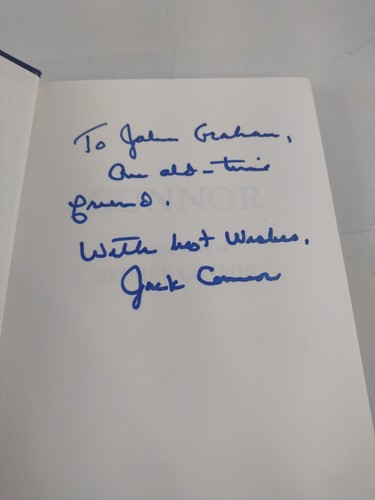 To John Graham,
An old-time
friend.
With best Wishes,
Jack Connor
CONNOR